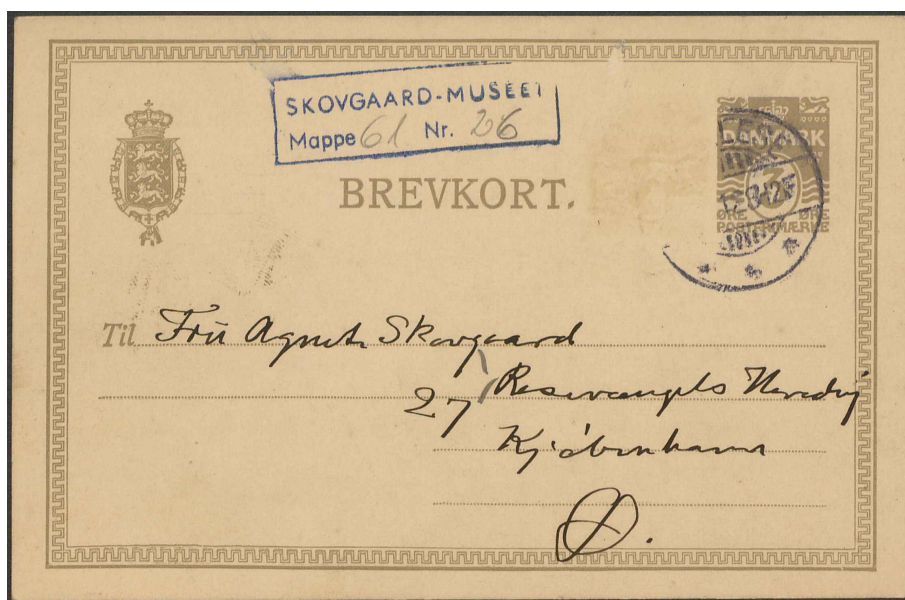 SKOVGAARD-MUSEET
Mappe 61 Nr. 26
DANMARK
3
ØRE ØRE
POSTFRIMÆRKE
BREVKORT.
Til Fru Agnete Skovgaard
27 Rosenvængets Hovedvej
Kjöbenhavn
Ø.